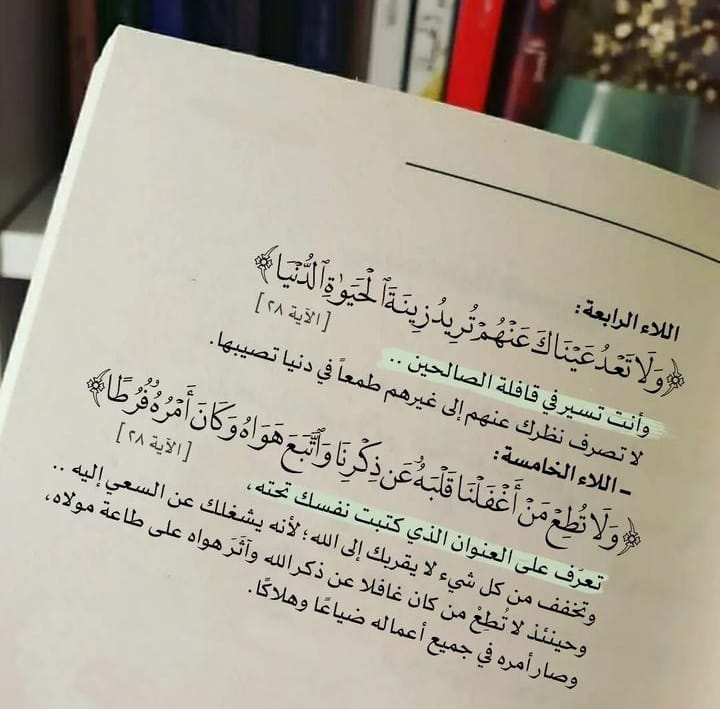 اللاء الرابعة:
﴿وَلَا تَعْدُ عَيْنَاكَ عَنْهُمْ تُرِيدُ زِينَةَ ٱلْحَيَوٰةِ ٱلدُّنْيَا﴾
[الآية ٢٨]
وأنت تسير في قافلة الصالحين ..
لا تصرف نظرك عنهم إلى غيرهم طمعاً في دنيا تصيبها.
- اللاء الخامسة:
﴿وَلَا تُطِعْ مَنْ أَغْفَلْنَا قَلْبَهُۥ عَن ذِكْرِنَا وَٱتَّبَعَ هَوَاهُ وَكَانَ أَمْرُهُۥ فُرُطًا﴾
[الآية ٢٨]
تعرّف على العنوان الذي كتبت نفسك تحته،
وتخفف من كل شيء لا يقربك إلى الله؛ لأنه يشغلك عن السعي إليه ..
وحينئذ لا تُطِعْ من كان غافلا عن ذكر الله وآثَرَ هواه على طاعة مولاه،
وصار أمره في جميع أعماله ضياعًا وهلاكًا.